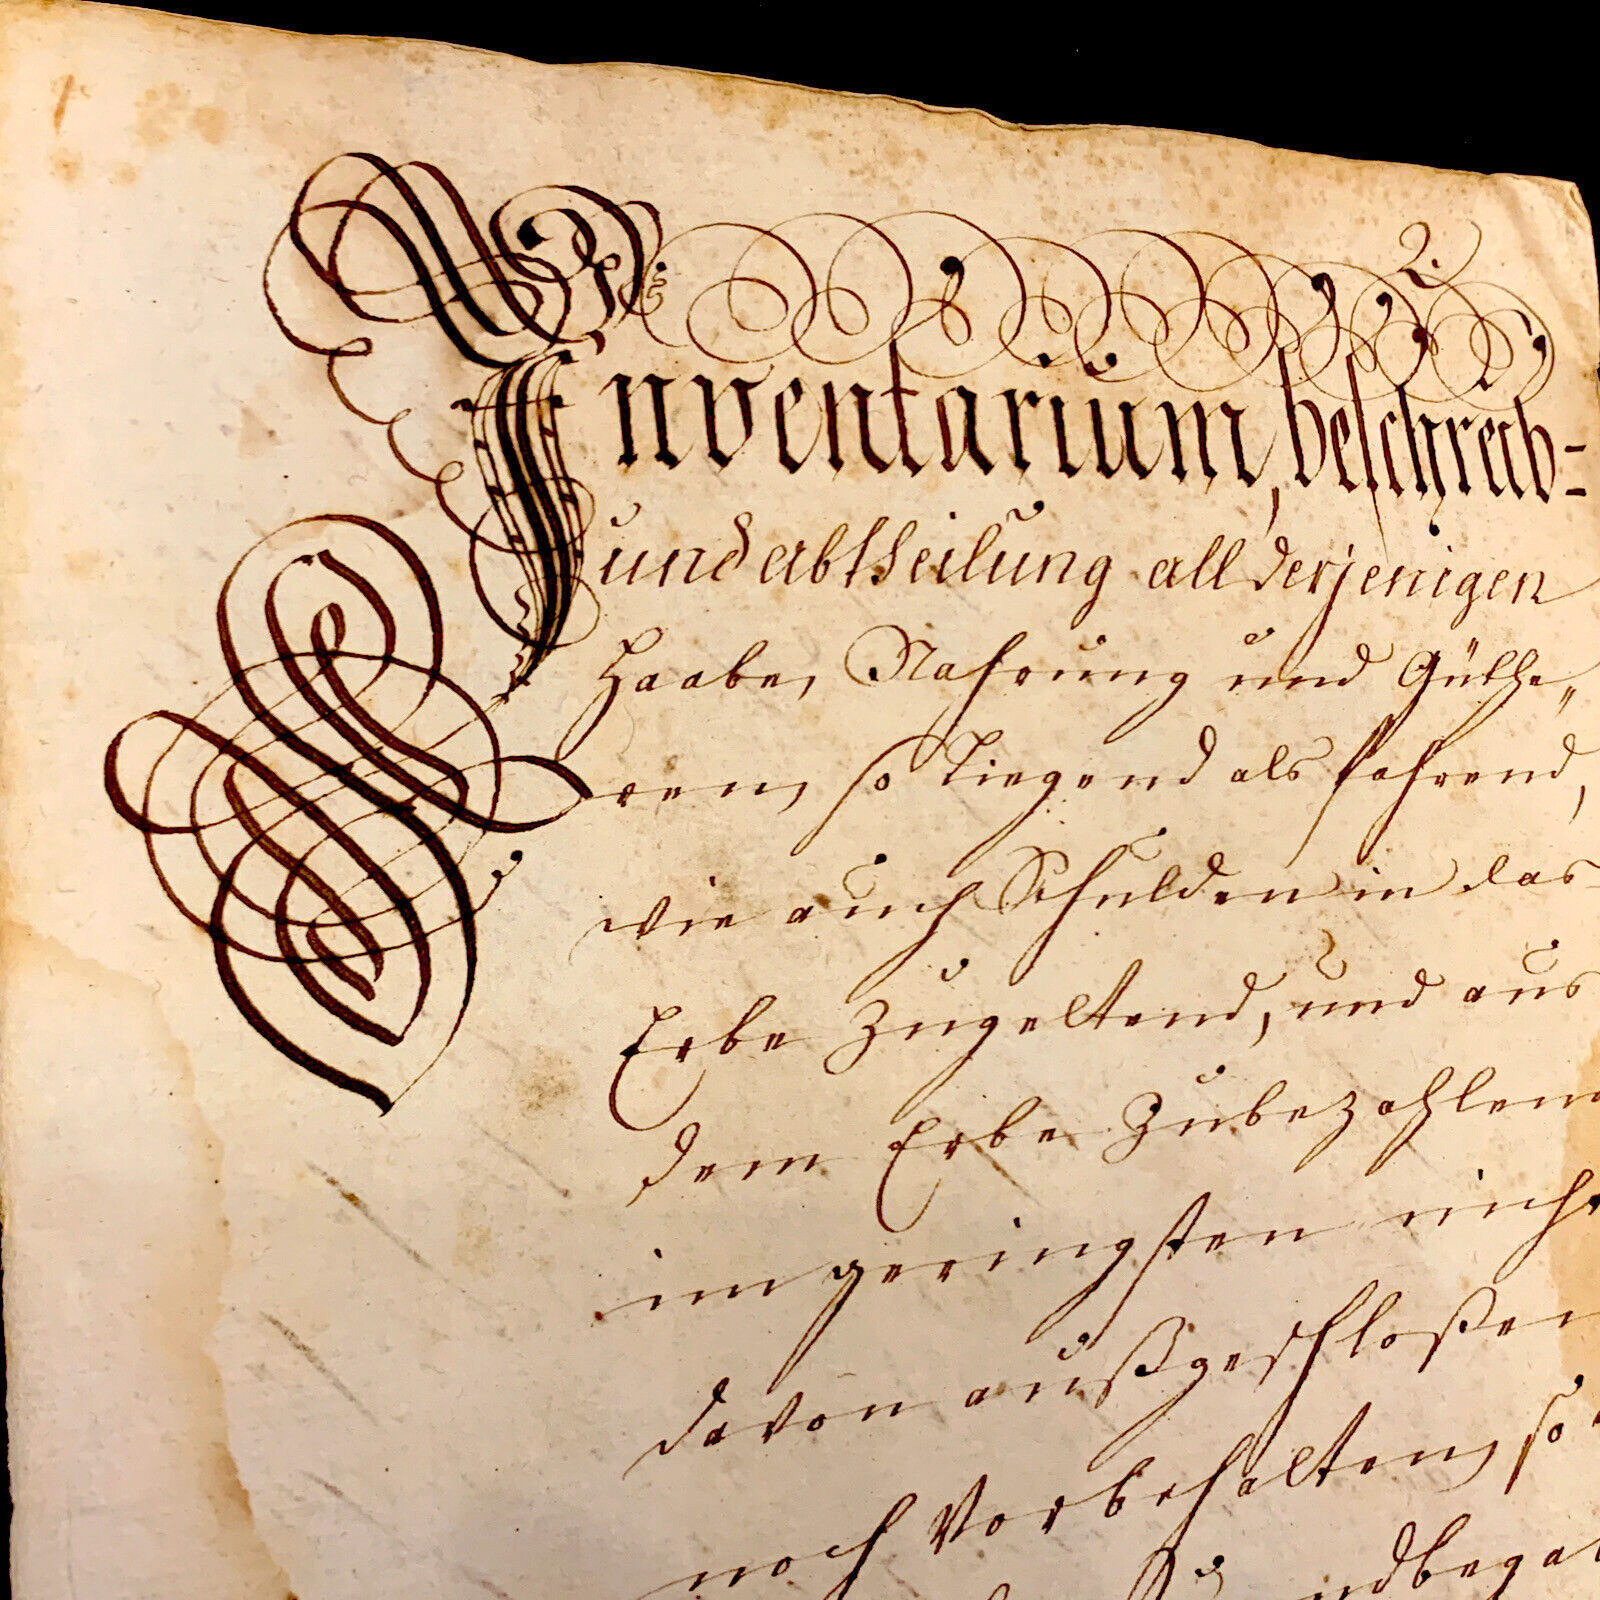 2.
Inventarium, beschreib=
und Abtheilung all derjenigen
Haabe, Nahrung und Güthe„
ren, so Liegend als fahrend,
wie auch Schulden in das
Erbe Zugeltend, und aus
dem Erbe Zubezahlen
im geringsten nicht
davon außgeschloßen
noch Vorbehalten, so